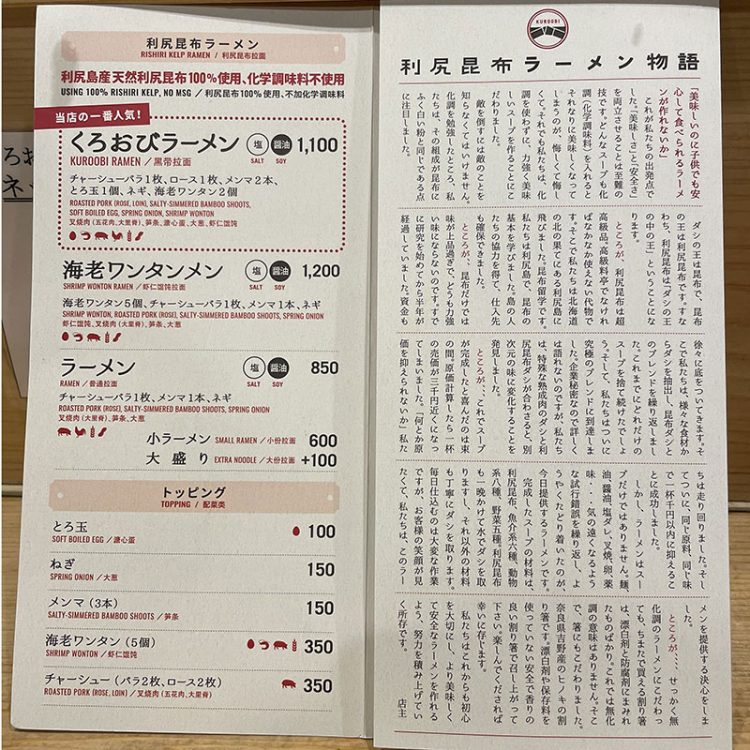 利尻昆布ラーメン
RISHIRI KELP RAMEN / 利尻昆布拉面
利尻島産天然利尻昆布100%使用、化学調味料不使用
USING 100% RISHIRI KELP, NO MSG / 利尻昆布100%使用、不加化学調味料
当店の一番人気!
くろおびラーメン 塩 醤油 1,100
KUROOBI RAMEN / 黑帯拉面 SALT SOY
チャーシューバラ1枚、ロース1枚、メンマ2本、
とろ玉1個、ネギ、海老ワンタン2個
ROASTED PORK (ROSE, LOIN), SALTY-SIMMERED BAMBOO SHOOTS,
SOFT BOILED EGG, SPRING ONION, SHRIMP WONTON
叉烧肉 (五花肉、大里脊)、笋条、溏心蛋、大葱、虾仁馄饨
海老ワンタンメン 塩 醤油 1,200
SHRIMP WONTON RAMEN / 虾仁馄饨拉面 SALT SOY
海老ワンタン5個、チャーシューバラ1枚、メンマ1本、ネギ
SHRIMP WONTON, ROASTED PORK (ROSE), SALTY-SIMMERED BAMBOO SHOOTS, SPRING ONION
虾仁馄饨、叉烧肉 (大里脊)、笋条、大葱
ラーメン 塩 醤油 850
RAMEN / 普通拉面 SALT SOY
チャーシューバラ1枚、メンマ1本、ネギ
ROASTED PORK (ROSE), SALTY-SIMMERED BAMBOO SHOOTS, SPRING ONION
叉烧肉 (大里脊)、笋条、大葱
小ラーメン SMALL RAMEN / 小份拉面 600
大盛り EXTRA NOODLE / 大份拉面 +100
トッピング
TOPPING / 配菜类
とろ玉 100
SOFT BOILED EGG / 溏心蛋
ねぎ 150
SPRING ONION / 大葱
メンマ (3本) 150
SALTY-SIMMERED BAMBOO SHOOTS / 笋条
海老ワンタン (5個) 350
SHRIMP WONTON / 虾仁馄饨
チャーシュー (バラ2枚、ロース2枚) 350
ROASTED PORK (ROSE, LOIN) / 叉烧肉 (五花肉、大里脊)
KUROOBI
利尻昆布ラーメン物語
「美味しいのに子供でも安
心して食べられるラーメ
ンが作れないか」
これが私たちの出発点で
した。「美味しさ」と「安全さ」
を両立させることは至難の
技です。どんなスープも化
調(化学調味料)を入れると
それなりに美味しくなって
しまうのが、悔しくて悔し
くて。それでも私たちは、化
調を使わずに、力強く美味
しいスープを作ることにこ
だわりました。
敵を倒すには敵のことを
知らなくてはいけません。
化調を勉強したところ、私
たちは、その組成が昆布に
ふく白い粉と同じである点
に注目しました。
ダシの王は昆布で、昆布
の王は利尻昆布です。すな
わち、利尻昆布は「ダシの王
の中の王」ということにな
ります。
ところが、利尻昆布は超
高級品。高級料亭でなけれ
ばなかなか使えない代物で
す。そこで私たちは北海道
の北の果てにある利尻島に
飛びました。昆布留学です。
私たちは利尻島で、昆布の
基本を学びました。島の人
たちの協力を得て、仕入先
も確保できました。
ところが、、昆布だけでは
味が上品過ぎで、どうも力強
い味にならないのです。すで
に研究を始めてから半年が
経過していました。資金も
徐々に底をついてきます。そ
こで私たちは、様々な食材か
らダシを抽出し、昆布ダシと
のブレンドを繰り返しまし
た。これまでにどれだけの
スープを捨て続けたでしょ
う。そして、私たちはついに
究極のブレンドに到達しま
した。企業秘密なので詳しく
は語れないのですが、私たち
は、特殊な熟成肉のダシと利
尻昆布ダシが合わさると、別
次元の味に変化することを
発見しました。
ところが、、、これでスープ
が完成したと喜んだのは束
の間。原価計算したら一杯
の売価が三千円近くになっ
てしまいました。「何とか原
価を抑えられないか」私た
ちは走り回りました。そし
てついに、同じ原料、同じ味
で一杯千円以内に抑えるこ
とに成功しました。
しかし、ラーメンはスー
プだけではありません。麺、
油、醤油、塩ダレ、叉焼、卵、薬
味・・・気の遠くなるよう
な試行錯誤を繰り返し、よ
うやくたどり着いたのが、
今日提供するラーメンです。
完成したスープの材料は、
利尻昆布、魚介系六種、動物
系八種、野菜五種。利尻昆布
も一晩かけて水でダシを取
りますし、それ以外の材料
も丁寧にダシを取ります。
毎日仕込むのは大変な作業
ですが、お客様の笑顔が見
たくて、私たちは、このラー
メンを提供する決心をしま
した。
ところが、、、、せっかく無
化調のラーメンにこだわっ
ても、ちまたで買える割り箸
は、漂白剤と防腐剤にまみれ
たものばかり。これでは無化
調の意味はありません。そこ
で、箸にもこだわりました。
奈良県吉野産のヒノキの割
り箸です。漂白剤や保存料を
使っていない安全で香りの
良い割り箸で召し上がって
下さい。楽しんでくだされば
幸いに存じます。
私たちはこれからも初心
を大切にし、より美味しく
て安全なラーメンを作れる
よう、努力を積み上げてい
く所存です。
店主